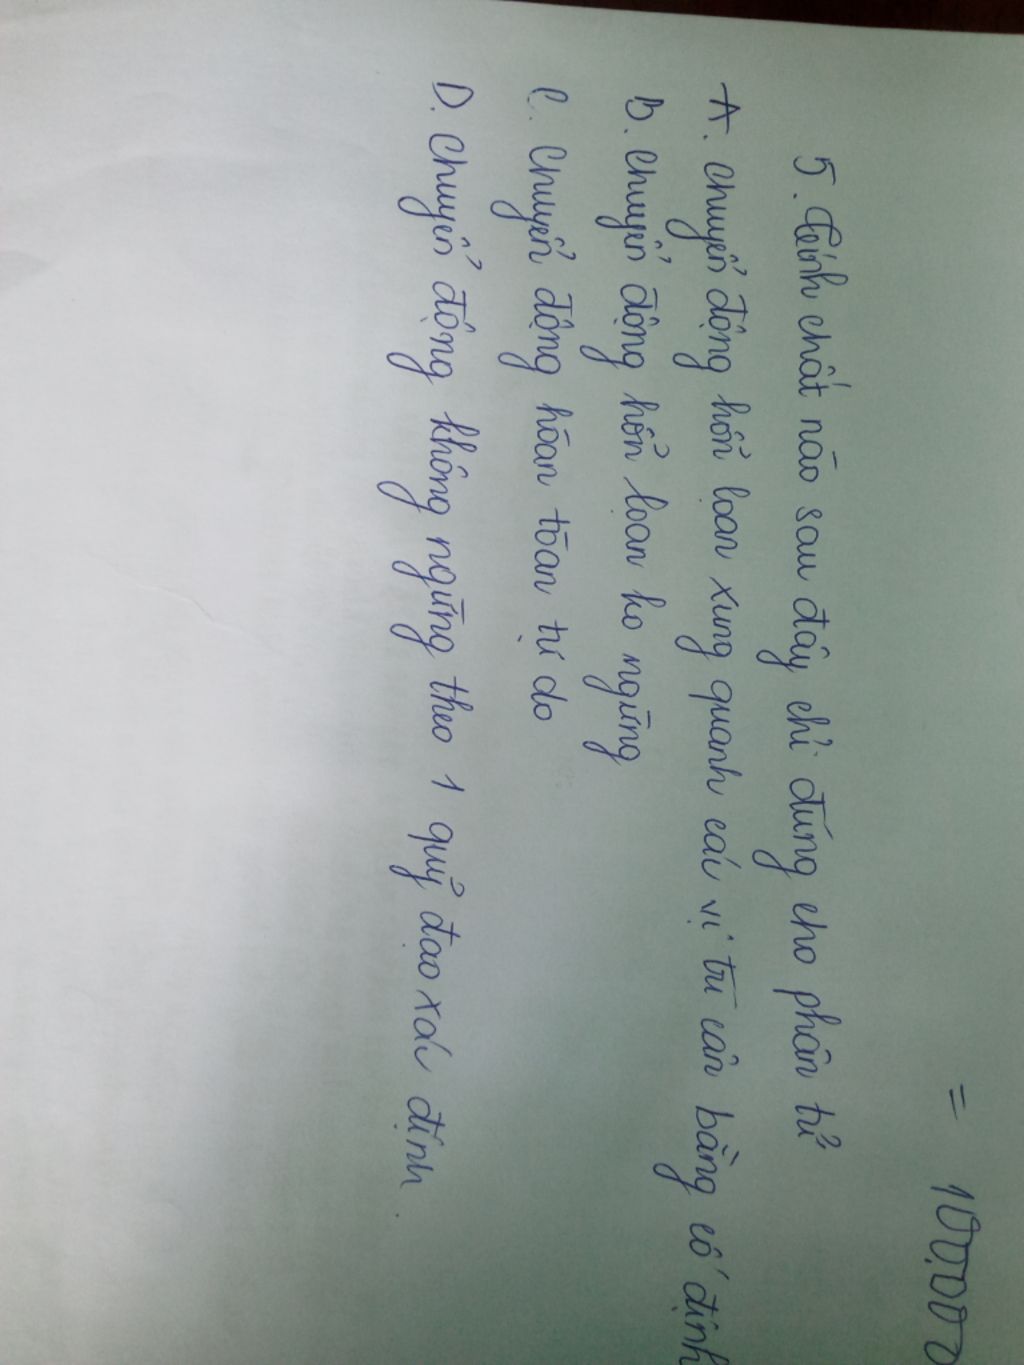 = 100.000
5. Tính chất nào sau đây chỉ đúng cho phân tử
A. chuyển động hỗn loạn xung quanh các vị trí cân bằng cố định
B. chuyển động hỗn loạn ko ngừng
C. Chuyển động hoàn toàn tự do
D. Chuyển động không ngừng theo 1 quỹ đạo xác định.